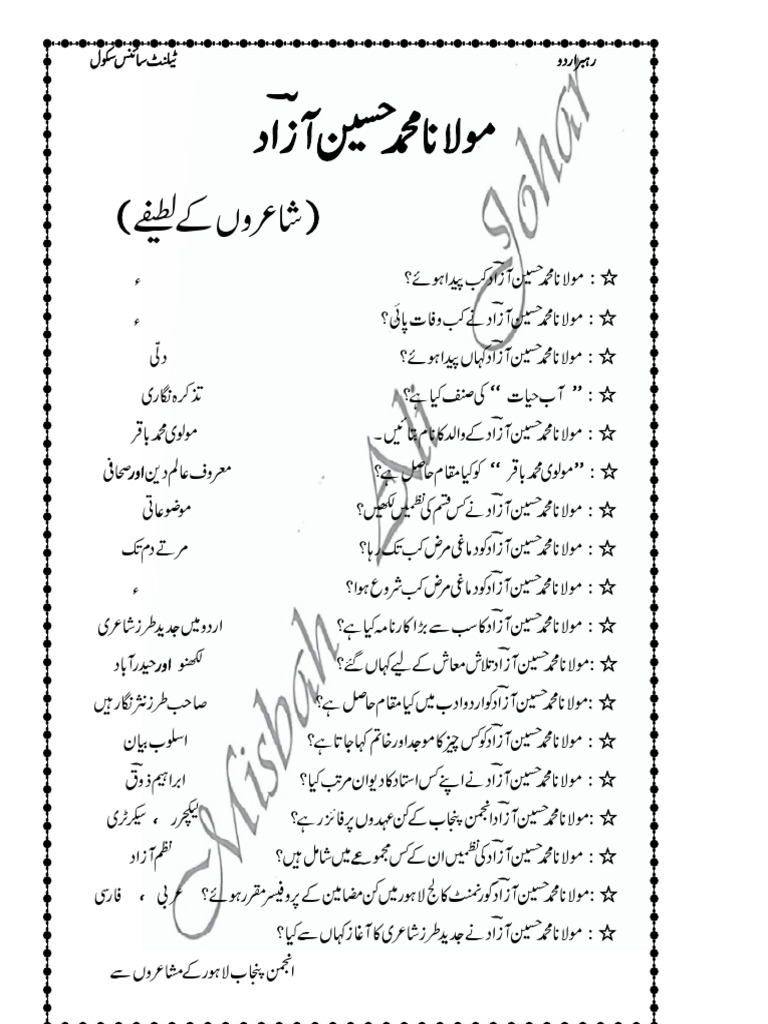 رہبر اردو ٹیلنٹ سائنس سکول
مولانا محمد حسین آزادؔ
(شاعروں کے لطیفے)
☆ : مولانا محمد حسین آزادؔ کب پیدا ہوئے؟ ء
☆ : مولانا محمد حسین آزادؔ نے کب وفات پائی؟ ء
☆ : مولانا محمد حسین آزادؔ کہاں پیدا ہوئے؟ دلّی
☆ : ”آب حیات“ کی صنف کیا ہے؟ تذکرہ نگاری
☆ : مولانا محمد حسین آزادؔ کے والد کا نام بتائیں۔ مولوی محمد باقر
☆ : ”مولوی محمد باقر“ کو کیا مقام حاصل ہے؟ معروف عالم دین اور صحافی
☆ : مولانا محمد حسین آزادؔ نے کس قسم کی نظمیں لکھیں؟ موضوعاتی
☆ : مولانا محمد حسین آزادؔ کو دماغی مرض کب تک رہا؟ مرتے دم تک
☆ : مولانا محمد حسین آزادؔ کو دماغی مرض کب شروع ہوا؟ ء
☆ : مولانا محمد حسین آزادؔ کا سب سے بڑا کارنامہ کیا ہے؟ اردو میں جدید طرز شاعری
☆ :مولانا محمد حسین آزادؔ تلاش معاش کے لیے کہاں گئے؟ لکھنو اور حیدر آباد
☆ :مولانا محمد حسین آزادؔ کو اردو ادب میں کیا مقام حاصل ہے؟ صاحب طرز نثر نگار ہیں
☆ : مولانا محمد حسین آزادؔ کو کس چیز کا موجد اور خاتم کہا جاتا ہے؟ اسلوب بیان
☆ : مولانا محمد حسین آزادؔ نے اپنے کس استاد کا دیوان مرتب کیا؟ ابراہیم ذوقؔ
☆ :مولانا محمد حسین آزادؔ انجمن پنجاب کے کن عہدوں پر فائز رہے؟ لیکچرر ، سیکرٹری
☆ : مولانا محمد حسین آزادؔ کی نظمیں ان کے کس مجموعے میں شامل ہیں؟ نظم آزاد
☆ :مولانا محمد حسین آزادؔ گورنمنٹ کالج لاہور میں کن مضامین کے پروفیسر مقرر ہوئے؟ عربی ، فارسی
☆ : مولانا محمد حسین آزادؔ نے جدید طرز شاعری کا آغاز کہاں سے کیا؟
انجمن پنجاب لاہور کے مشاعروں سے
Misbah Ali Johar